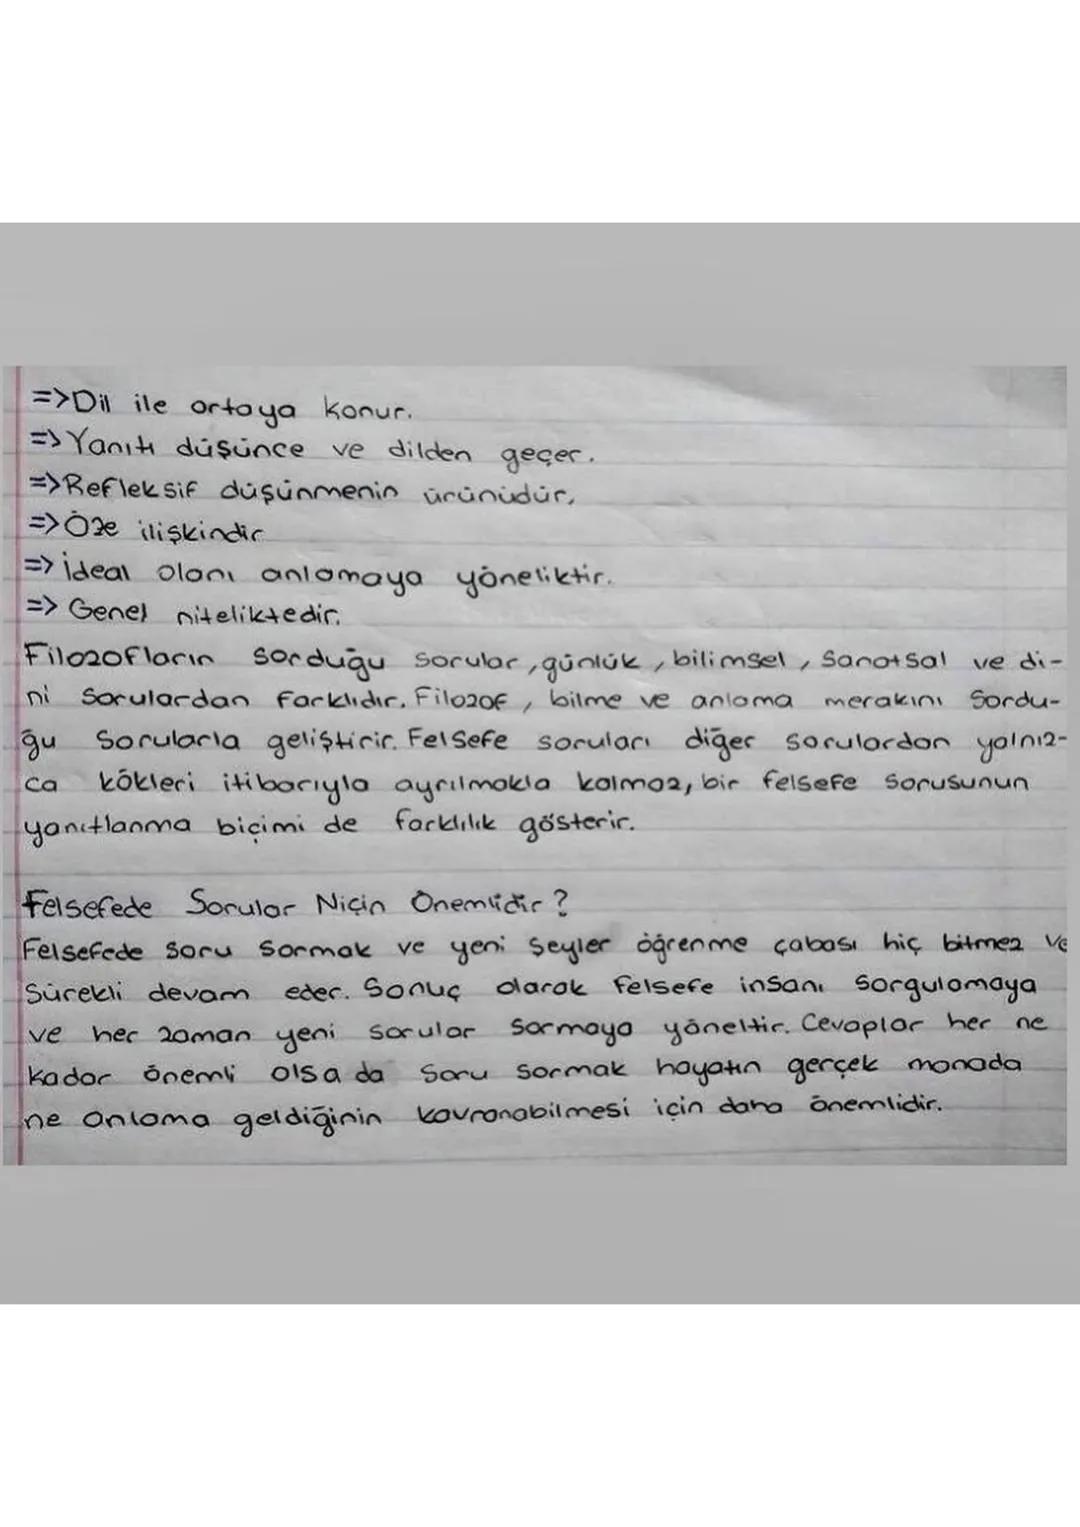 =>Dil ile ortaya konur.
=>Yanıtı düşünce ve dilden geçer.
=>Refleksif düşünmenin ürünüdür.
=>Öze ilişkindir
=> İdeal olanı anlamaya yöneliktir.
=> Genel niteliktedir.
Filozofların sorduğu sorular, günlük, bilimsel, Sanatsal ve di-
ni Sorulardan farklıdır. Filozof, bilme ve anlama merakını Sordu-
ğu Sorularla geliştirir. Felsefe soruları diğer sorulardan yalnız-
ca kökleri itibarıyla ayrılmakla kalmaz, bir felsefe sorusunun
yanıtlanma biçimi de farklılık gösterir.
Felsefede Sorular Niçin Önemlidir?
Felsefede Soru Sormak ve yeni Şeyler öğrenme çabası hiç bitmez ve
Sürekli devam eder. Sonuç olarak felsefe insanı Sorgulamaya
ve her zaman yeni sorular sormaya yöneltir. Cevaplar her ne
kadar önemli olsa da Soru sormak hayatın gerçek manada
ne anlama geldiğinin kavranabilmesi için daha önemlidir.